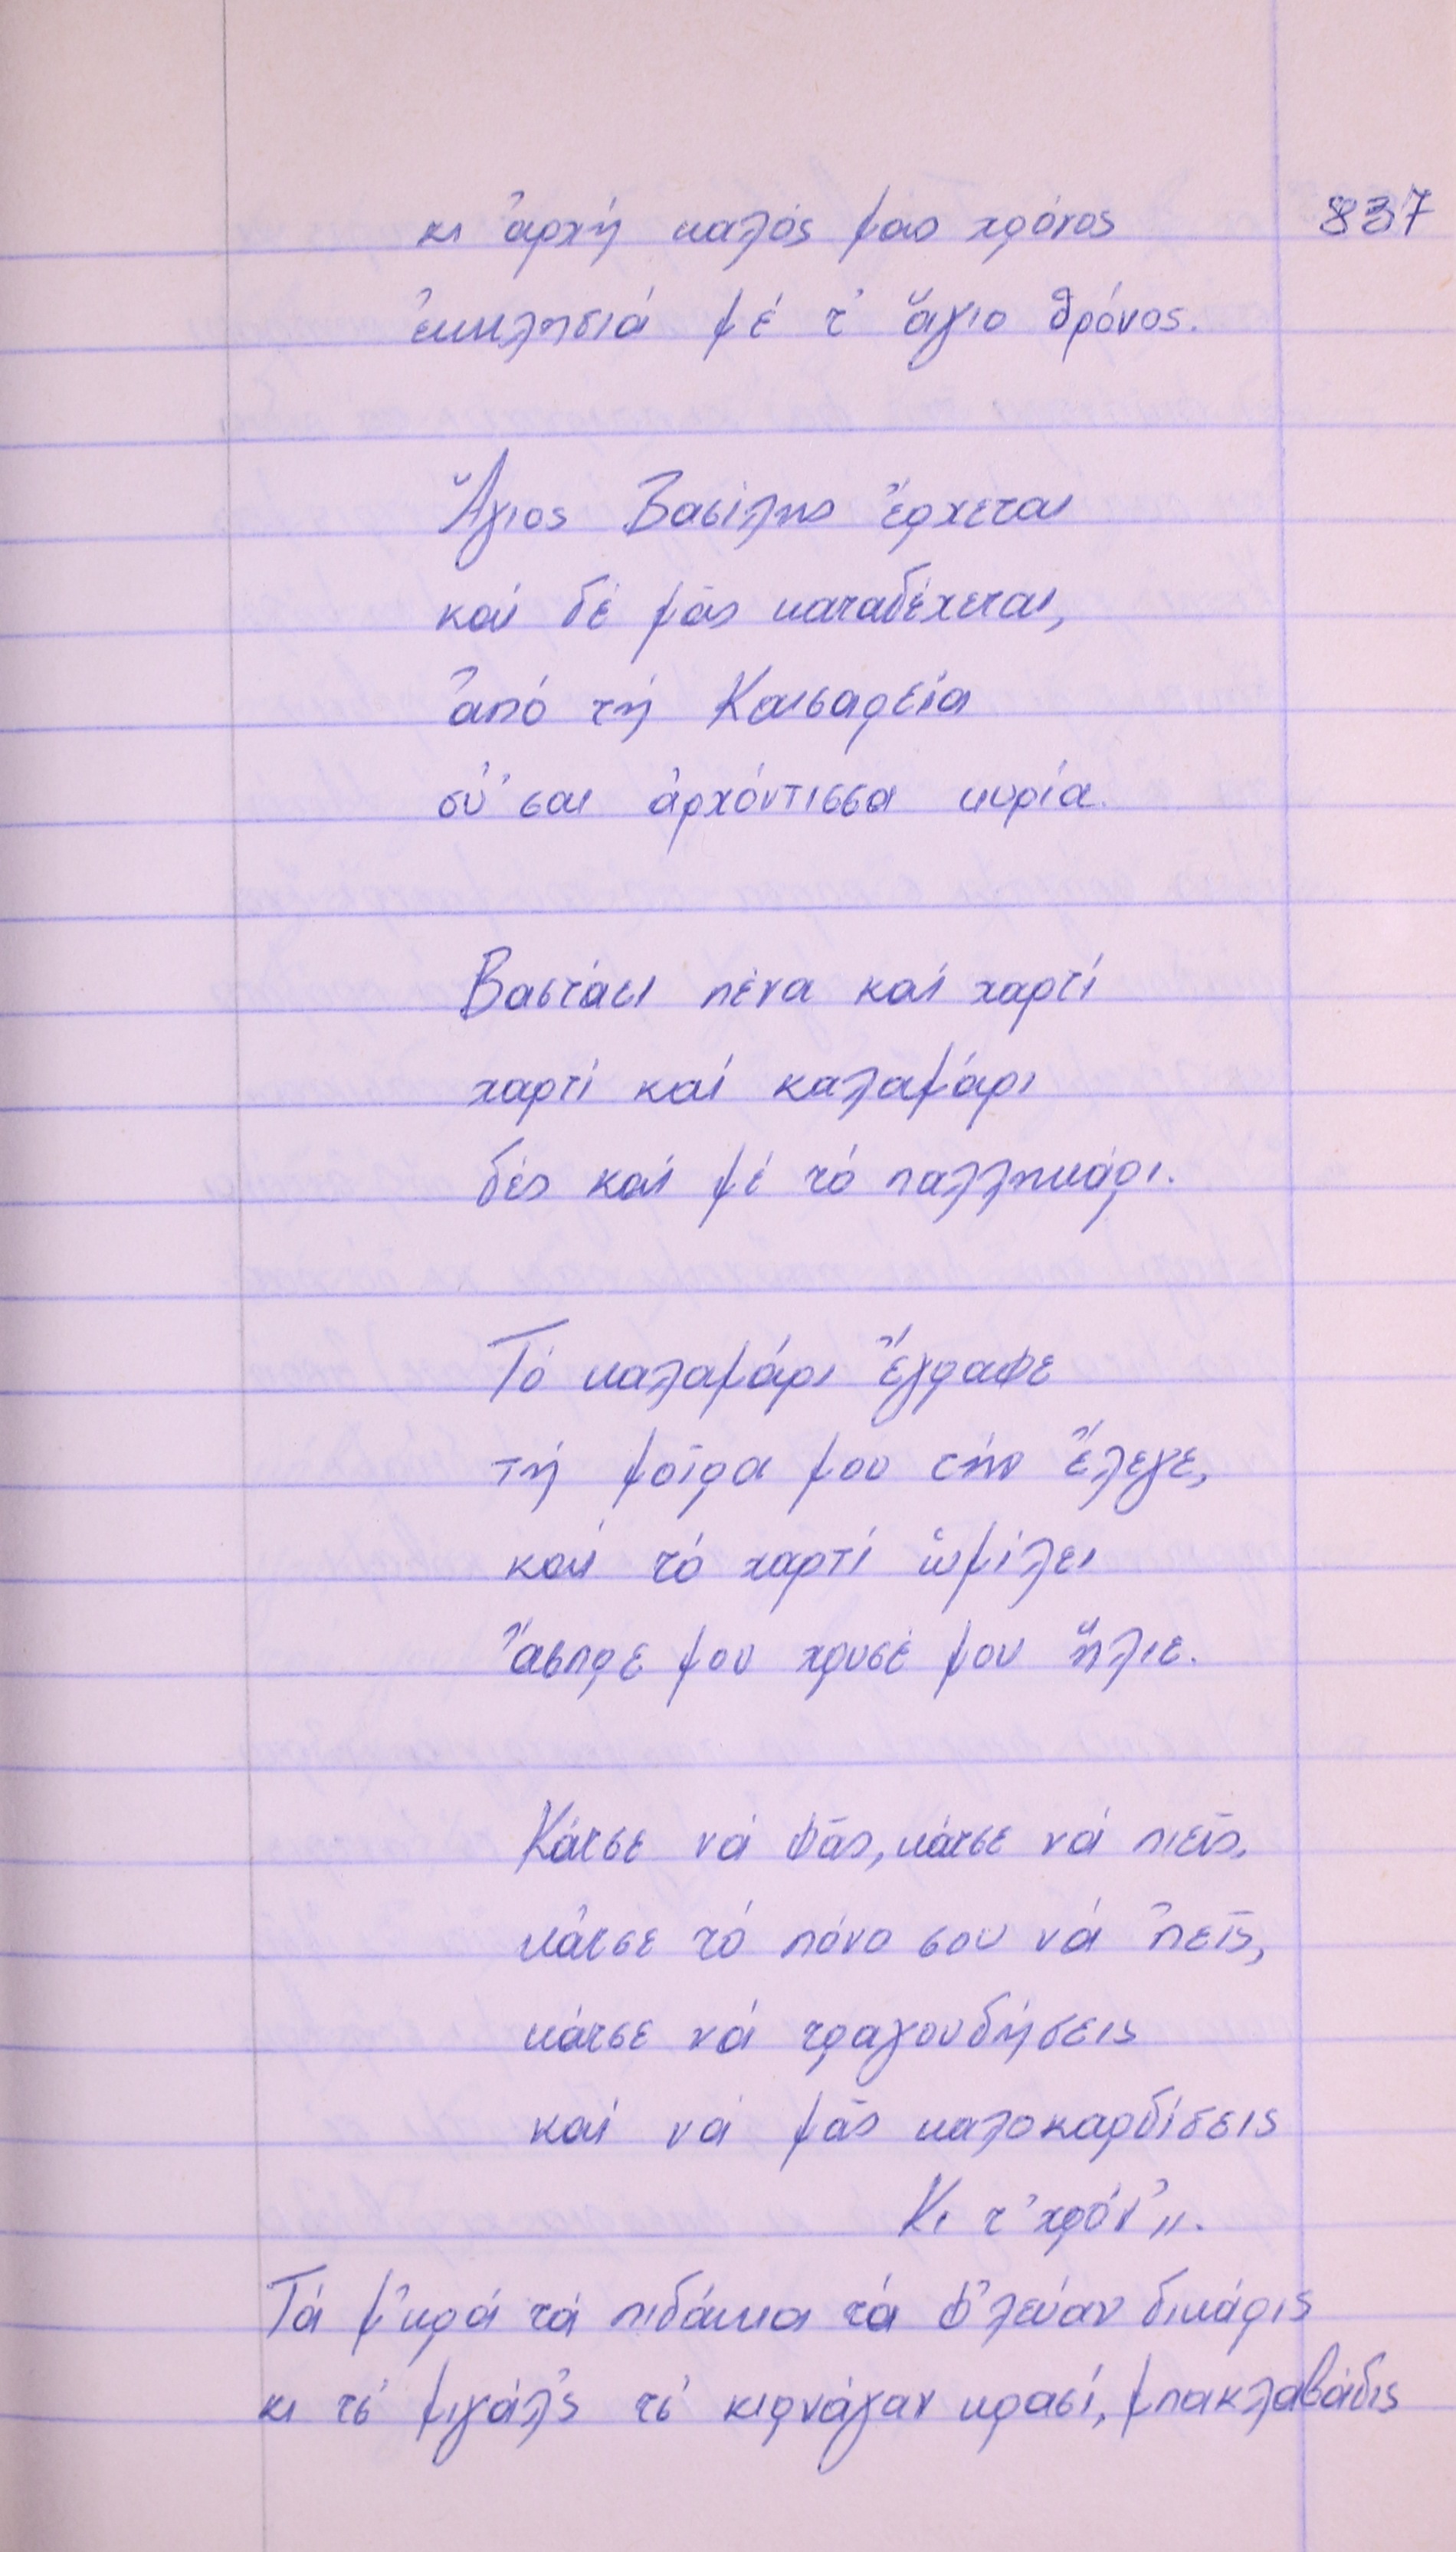 837
κι ἀρχή καλός μας χρόνος
ἐκκλησιά μέ τ' ἅγιο θρόνος.
Ἅγιος Βασίλης ἔρχεται
καί δέ μᾶς καταδέχεται,
ἀπό τή Καισαρεία
σύ 'σαι ἀρχόντισσα κυρία.
Βαστάει πένα καί χαρτί
χαρτί καί καλαμάρι
δές καί μέ τό παλληκάρι.
Τό καλαμάρι ἔγραφε
τή μοῖρα μου τήν ἔλεγε,
καί τό χαρτί ὡμίλει
ἄσπρε μου χρυσέ μου ἥλιε.
Κάτσε νά φᾶς, κάτσε νά πιεῖς,
κάτσε τό πόνο σου νά 'πεῖς,
κάτσε νά τραγουδήσεις
καί νά μᾶς καλοκαρδίσεις
Κι τ' χρόν'".
Τά μ'κρά τά πιδάκια τά φ'λεύαν δικάρις
κι τσ' μιγάλ'ς τσ' κιρνάγαν κρασί, μπακλαβάδις